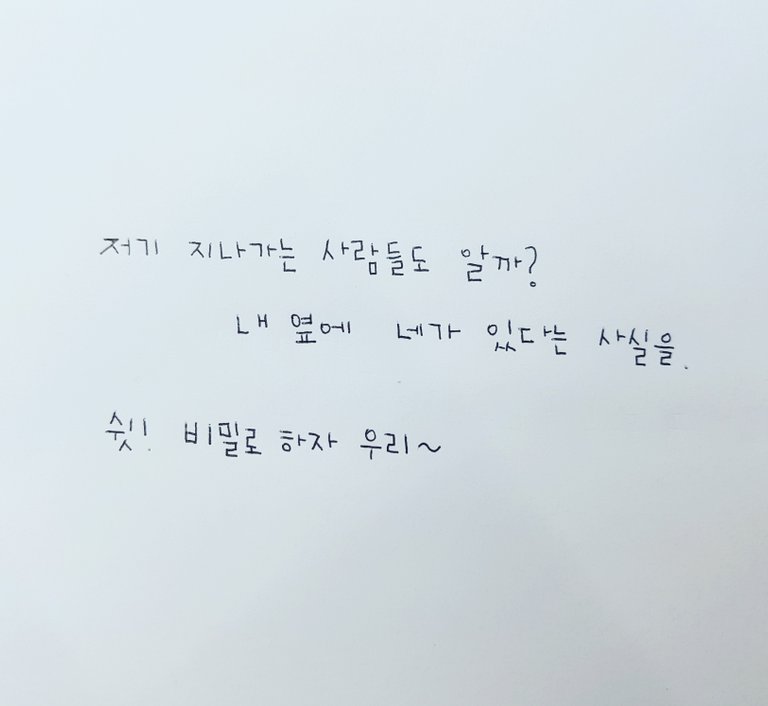 저기 지나가는 사람들도 알까?
내 옆에 네가 있다는 사실을.
쉿! 비밀로 하자 우리~